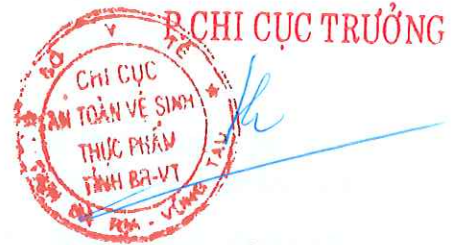 P.CHI CỤC TRƯỞNG
SỞ Y TẾ
CHI CỤC
AN TOÀN VỆ SINH
THỰC PHẨM
TỈNH BR-VT
RỊA - VŨNG TÀU